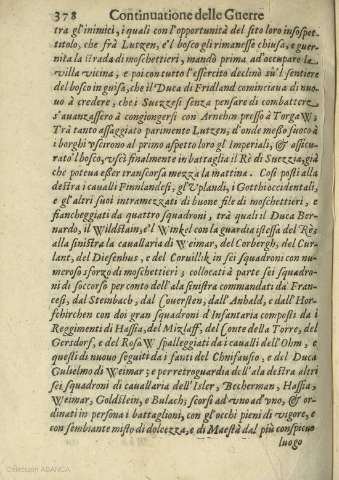 378 Continuatione delle Guerre
tra gl'inimici, i quali con l'opportunità del sito loro insospet-
titolo, che frà Lutzen, e'l bosco gli rimanesse chiusa, e guer-
nita la strada di moschettieri, mandò prima ad occupare la
villa vicina, e poi con tutto l'essercito declinò sù'l sentiere
del bosco in guisa, che il Duca di Fridland cominciaua di nuo-
uo à credere, che i Suezzesi senza pensare di combattere
s'auanzassero à congiongersi con Arnehin presso à TorgaW;
Trà tanto assaggiato parimente Lutzen, d'onde messo fuoco à
i borghi vscirono al primo aspetto loro gl'Imperiali, & assicu-
rato'l bosco, vscì finalmente in battaglia il Rè di Suezzia, già
che poteua esser transcorsa mezza la mattina. Così posti alla
destra i caualli Finnlandesi, gl'Vplandi, i Gotthioccidentali,
e gl'altri suoi intramezzati di buone file di moschettieri, e
fiancheggiati da quattro squadroni, trà quali il Duca Ber-
nardo, il Wildstain, e'l Winkel con la guardia istessa del Rè;
alla sinistra la cauallaria di Weimar, del Corbergh, del Cur-
lant, del Diesenhus, e del Coruillik in sei squadroni con nu-
meroso sforzo di moschettieri; collocati à parte sei squadro-
ni di soccorso per conto dell'ala sinistra commandati da Fran-
cesi, dal Steinbach, dal Couersten, dall'Anhald, e dall'Hor-
schirchen con doi gran squadroni d'Infantaria composti da i
Reggimenti di Hassia, del Mizlaff, del Conte della Torre, del
Gersdorf, e del RosaW spalleggiati da i caualli dell'Ohm, e
questi di nuouo seguiti da i fanti del Chnifausio, e del Duca
Gulielmo di Weimar; e per retroguardia dell'ala destra altri
sei squadroni di cauallaria dell'Isler, Becherman, Hassia,
Weimar, Goldstein, e Bulach; scorsi ad vno ad vno, & or-
dinati in persona i battaglioni, con gl'occhi pieni di vigore, e
con sembiante misto di dolcezza, e di Maestà dal più conspicuo
luogo